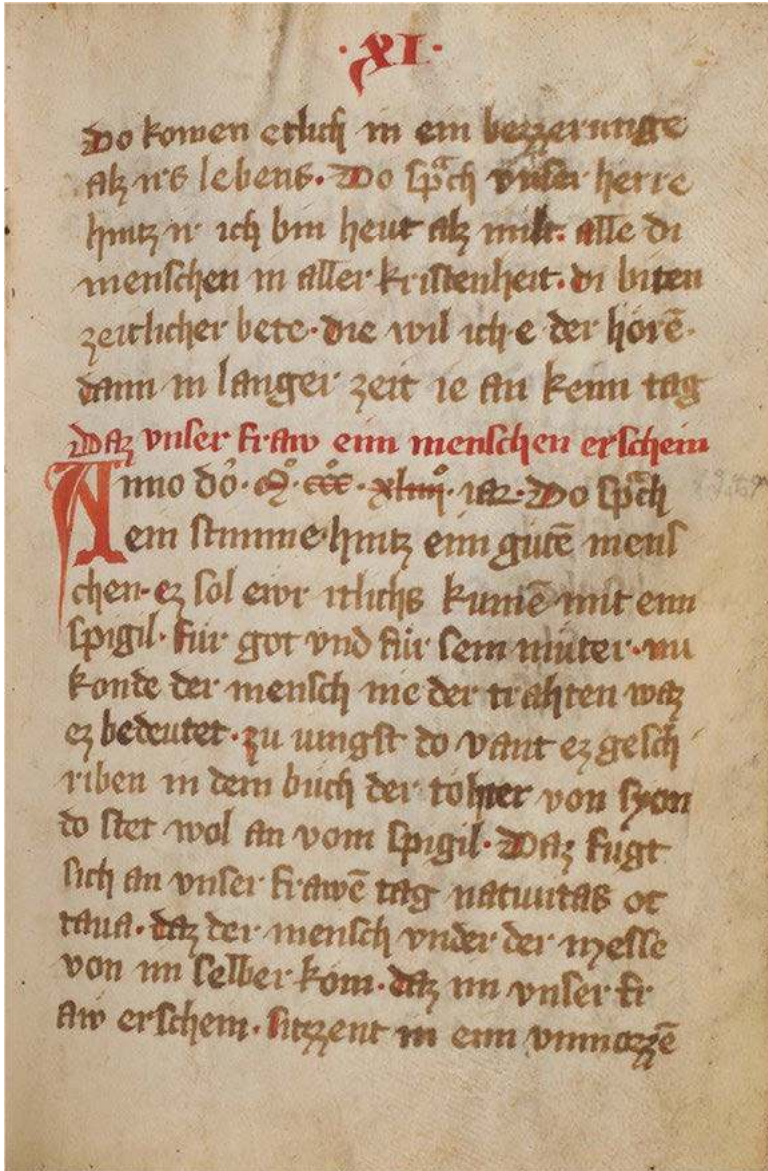 ·XI·
Do komen etlich in ein bezzerunge
alz irs lebens. Do sprach vnser herre
hintz ir ich bin heut alz milt. alle di
menschen in aller kristenheit. di biten
zeitlicher bete. die wil ich e der hörē.
dann in langer zeit ie an kein tag
Daz vnser fraw eim menschen erschein
Anno do. M. ccc. xliiii. iar. Do sprach
ein stimme. hintz eim gutē mens
chen. ez sol ewr itlichs kumē mit eim
spigil. für got vnd für sein muter. nu
konde der mensch nie der trahten waz
ez bedeutet. zu iungst do vant ez gesch
riben in dem buch der tohter von syon
do stet wol an vom spigil. Daz fugt
sich an vnser frawē tag natiuitas oc
taua. daz der mensch vnder der messe
von im selber kom. daz im vnser fr
aw erschein. sitzzent in eim vnmazzē